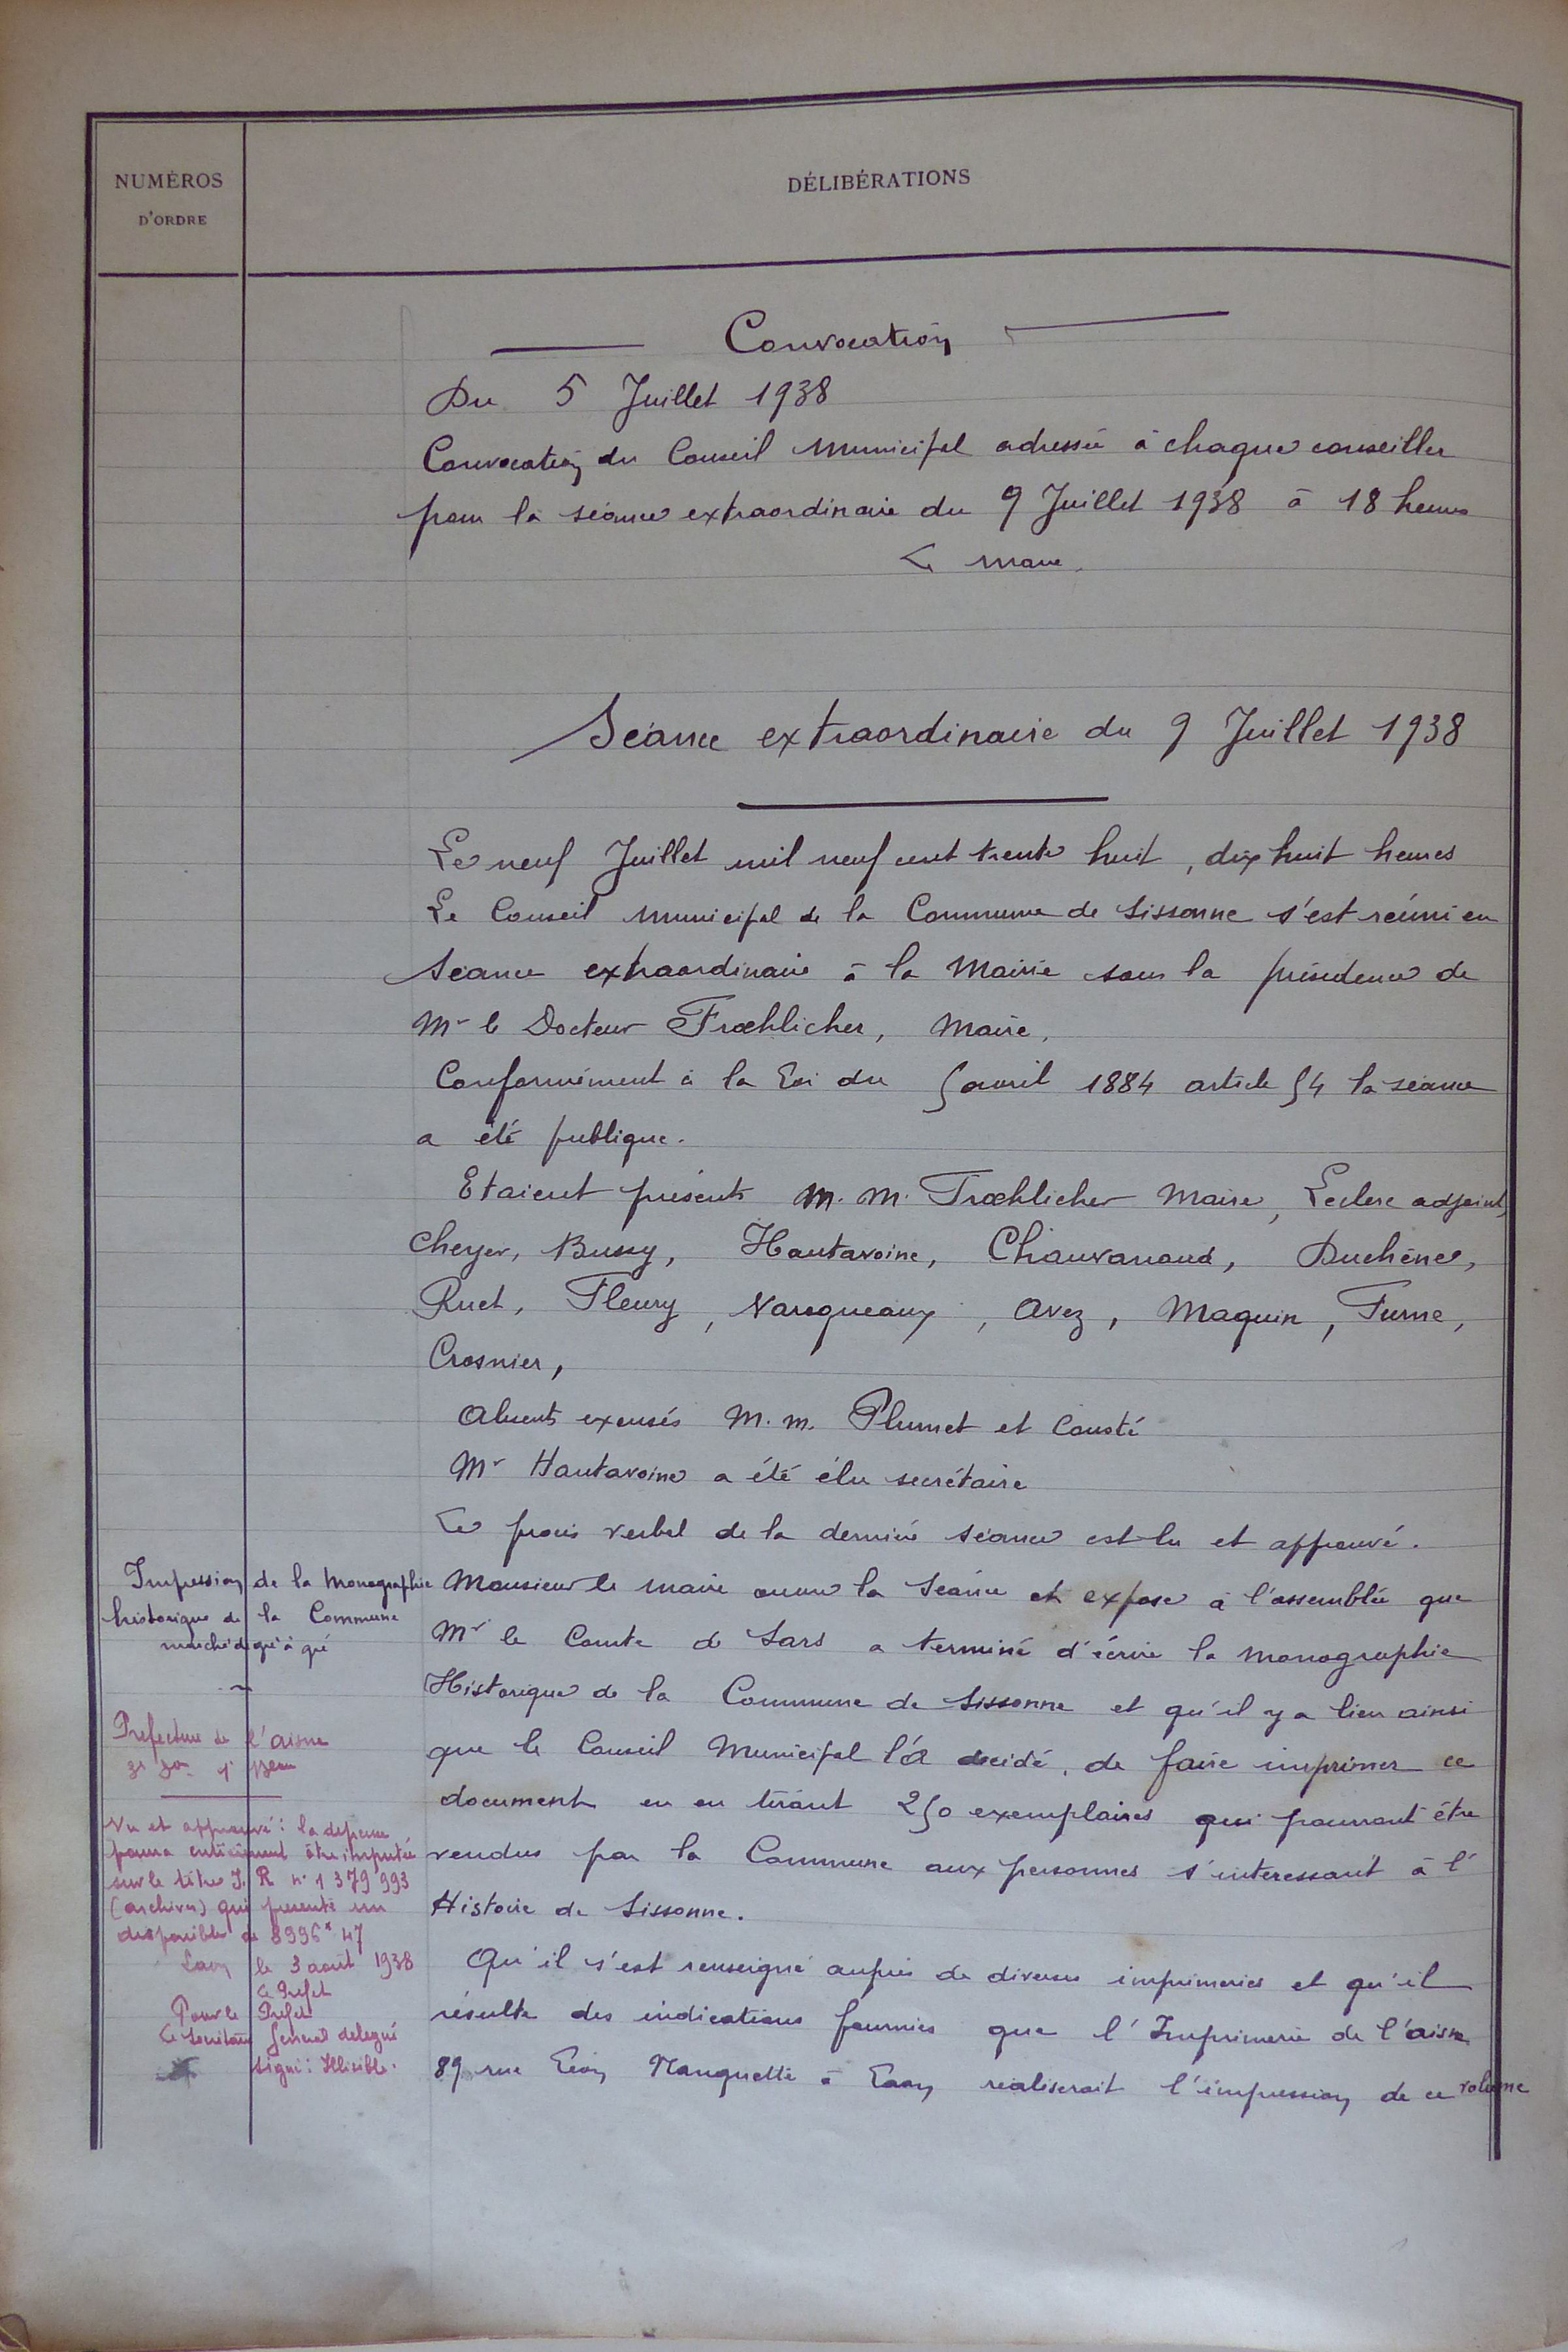 NUMÉROS
D'ORDRE
DÉLIBÉRATIONS
Convocation
Du 5 Juillet 1938
Convocation du Conseil Municipal adressée à chaque conseiller
pour la séance extraordinaire du 9 Juillet 1938 à 18 heures
Le Maire.
Séance extraordinaire du 9 Juillet 1938
Le neuf Juillet mil neuf cent trente huit, dix huit heures
Le Conseil Municipal de la Commune de Sissonne s'est réuni en
séance extraordinaire à la Mairie sous la présidence de
Mr le Docteur Frœhlicher, Maire.
Conformément à la Loi du 5 avril 1884 article 54 la séance
a été publique.
Etaient présents M. M. Frœhlicher Maire, Leclerc adjoint,
Cheyer, Bussy, Hautavoine, Chauvanaud, Duchêne,
Ruet, Fleury, Narqueaux, Avez, Maquin, Furne,
Crosnier,
Absents excusés M. M. Plumet et Cousté
Mr Hautavoine a été élu secrétaire
Le procès verbal de la dernière séance est lu et approuvé.
Impression de la Monographie
historique de la Commune
marché de gré à gré
Monsieur le Maire ouvre la séance et expose à l'assemblée que
Mr le Comte de Sars a terminé d'écrire la monographie
Historique de la Commune de Sissonne et qu'il y a lieu ainsi
que le Conseil Municipal l'a décidé, de faire imprimer ce
document en en tirant 250 exemplaires qui pourront être
vendus par la Commune aux personnes s'interessant à l'
Histoire de Sissonne.
Qu'il s'est renseigné auprès de diverses imprimeries et qu'il
résulte des indications fournies que l'Imprimerie de l'Aisne
89 rue Léon Nanquette à Laon réaliserait l'impression de ce volume
Prefecture de l'Aisne
Vu et approuvé : la depense
pourra entièrement être imputée
sur le titre I. R n° 1 379 993
(archives) qui presente un
disponible de 8996f 47
Laon le 3 août 1938
Le Préfet
Pour le Préfet
Le Secrétaire General delegué
signé : Illisible.